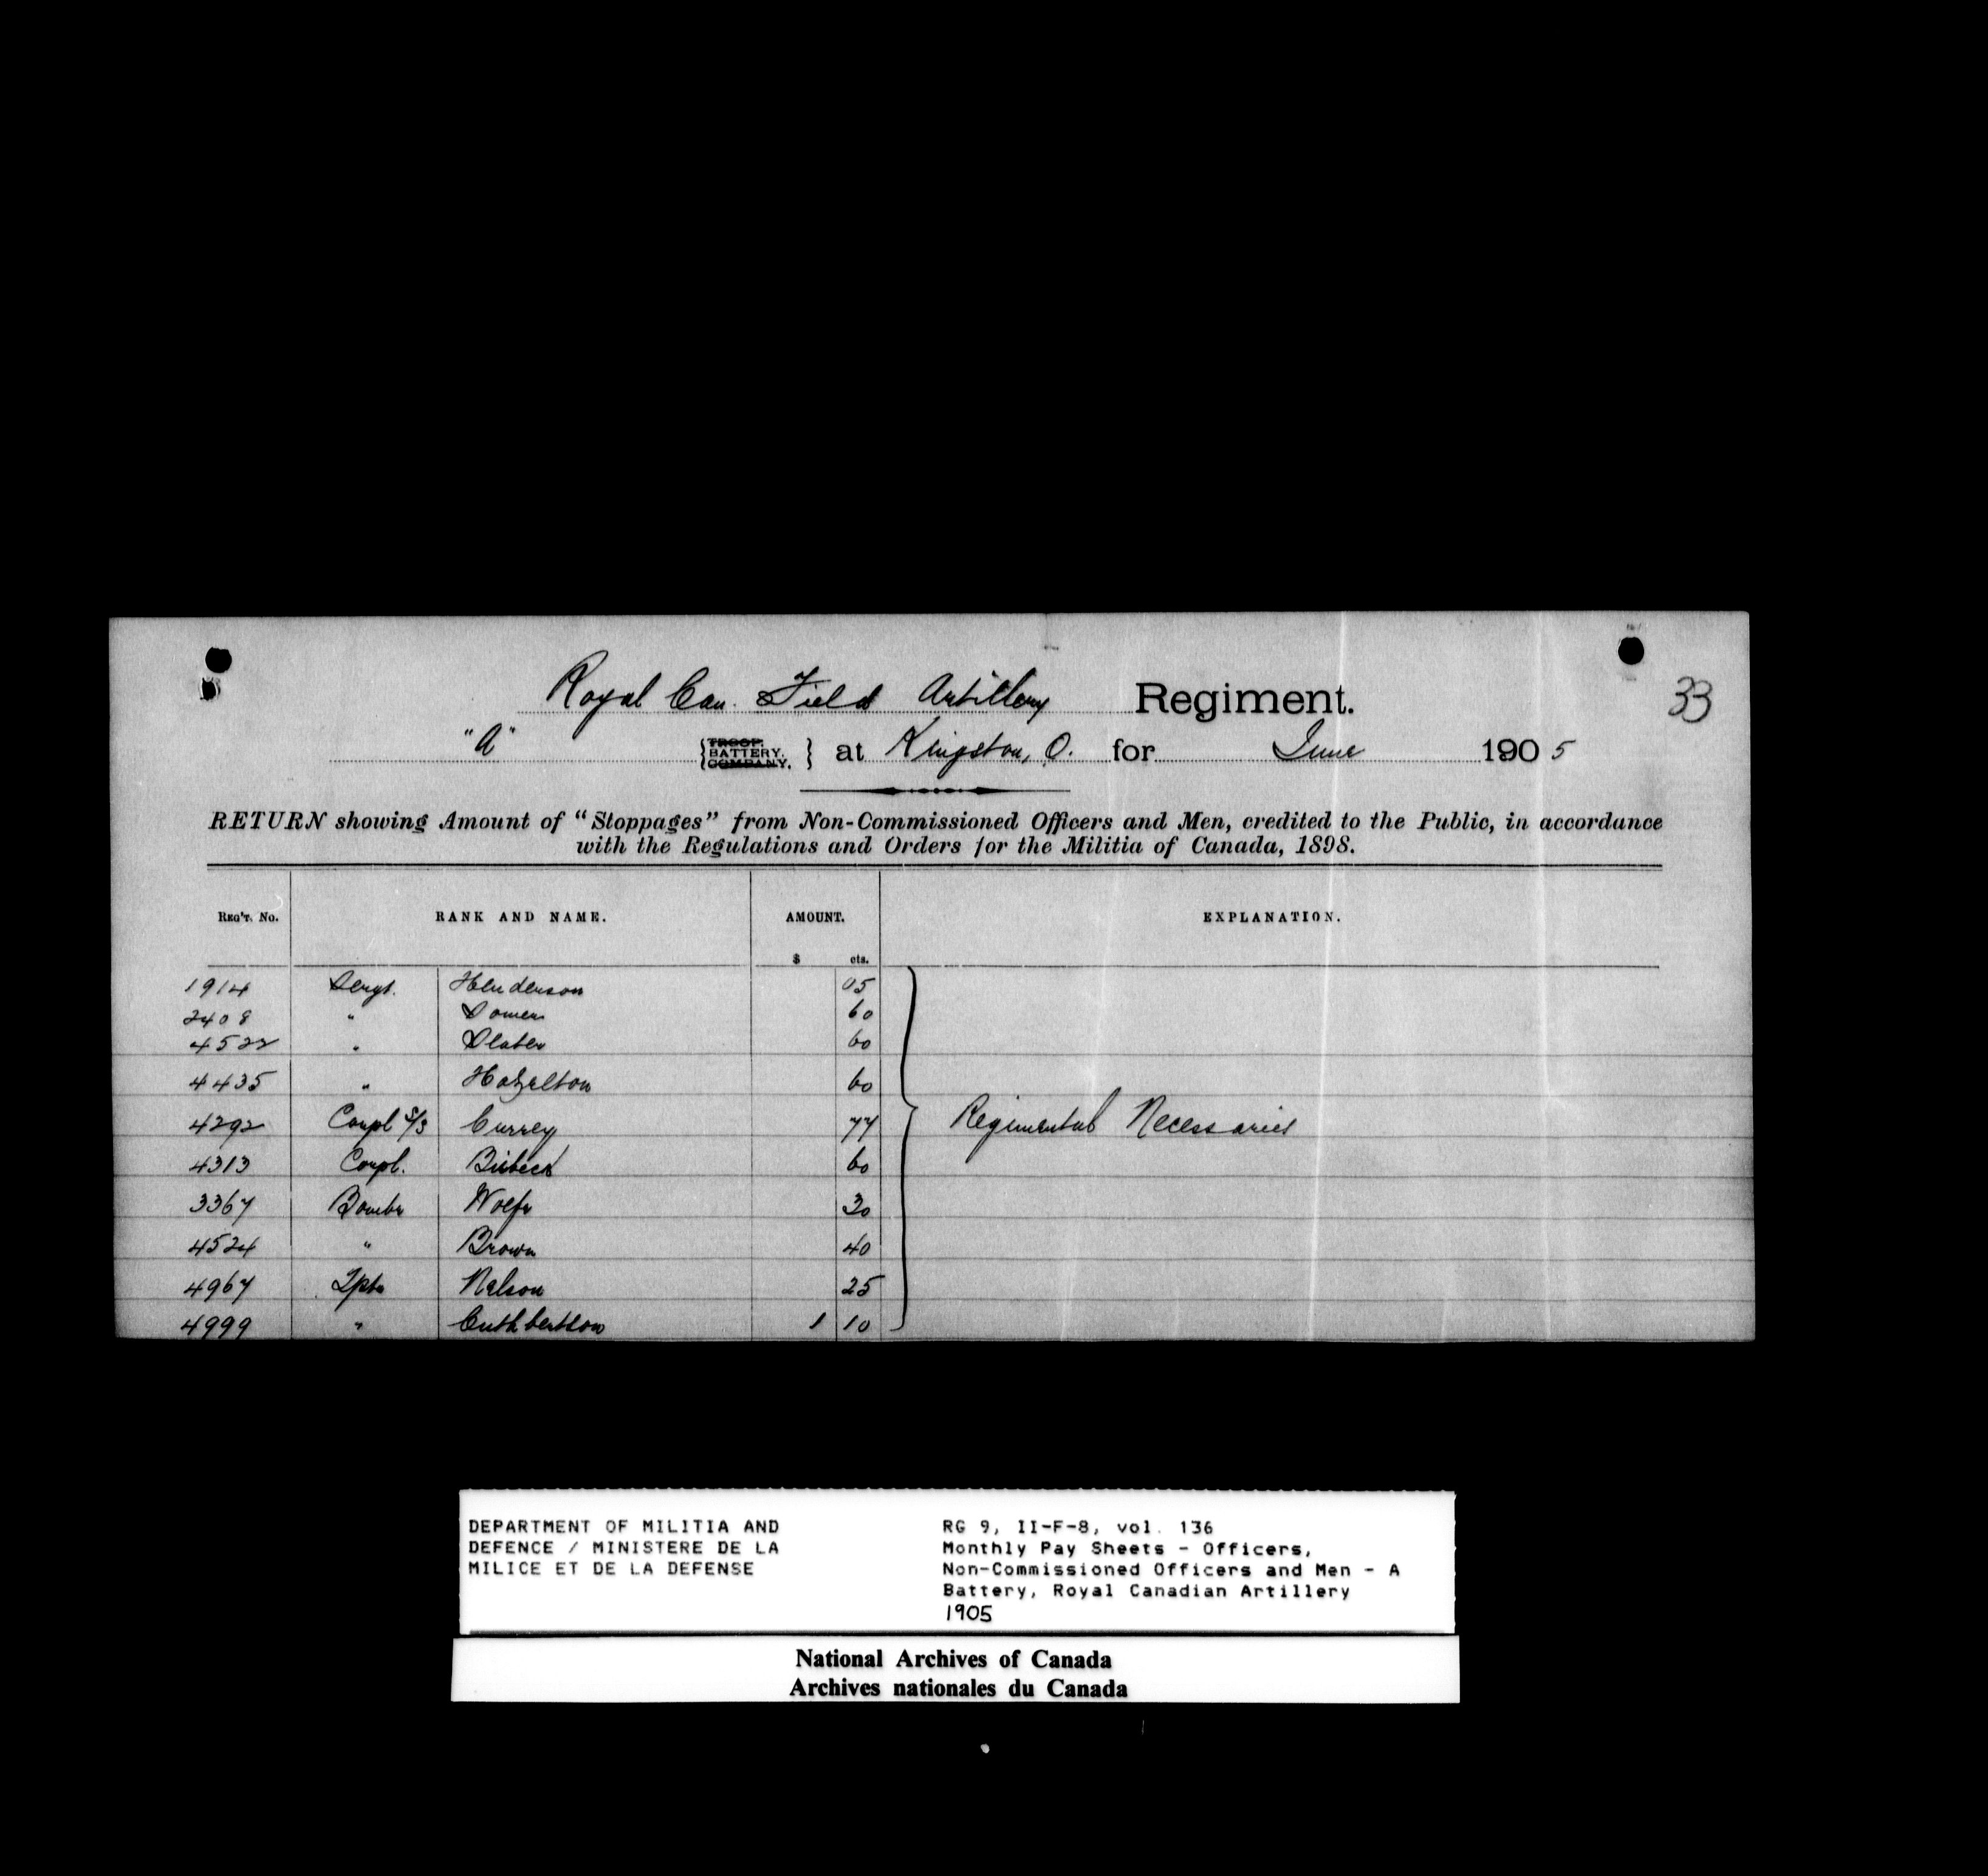 33
Royal Can. Field Artillery Regiment.
"A" {TROOP. BATTERY. COMPANY.} at Kingston, O. for June 1905
RETURN showing Amount of "Stoppages" from Non-Commissioned Officers and Men, credited to the Public, in accordance
with the Regulations and Orders for the Militia of Canada, 1898.
REG'T. NO. RANK AND NAME. AMOUNT. EXPLANATION.
$ cts.
1914 Sergt. Henderson 05
2408 " 60
4522 " Slater 60
4435 " Hazelton 60
4292 Corpl S/S Currey 77
4313 Corpl. 60
3367 Bombr Wolfe 30
4524 " Brown 40
4967 Tptr Nelson 25
4999 " Cuthbertson 1 10
Regimental Necessaries
DEPARTMENT OF MILITIA AND
DEFENCE / MINISTERE DE LA
MILICE ET DE LA DEFENSE
RG 9, II-F-8, vol. 136
Monthly Pay Sheets - Officers,
Non-Commissioned Officers and Men - A
Battery, Royal Canadian Artillery
1905
National Archives of Canada
Archives nationales du Canada